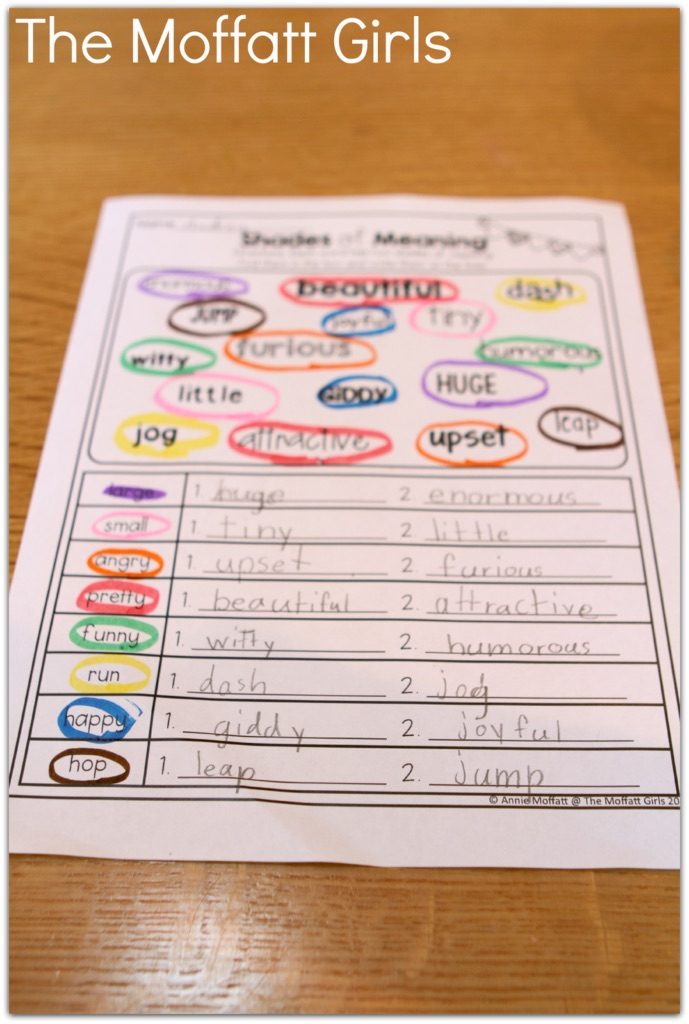 The Moffatt Girls
Shades of Meaning
enormous beautiful dash
JUMP joyful tiny
witty furious humorous
little GIDDY HUGE
jog attractive upset leap
large 1. huge 2. enormous
small 1. tiny 2. little
angry 1. upset 2. furious
pretty 1. beautiful 2. attractive
funny 1. witty 2. humorous
run 1. dash 2. jog
happy 1. giddy 2. joyful
hop 1. leap 2. jump
© Annie Moffatt @ The Moffatt Girls 20